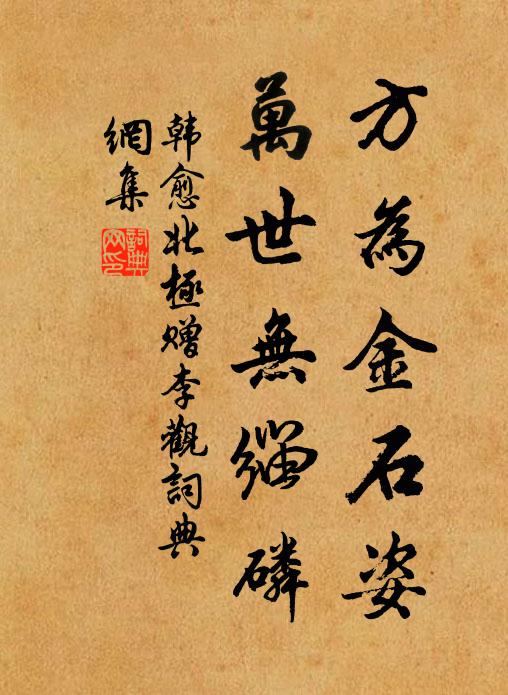 方為金石姿
萬世無緇磷
韓愈北極贈李觀詞典
網集
詞典網印